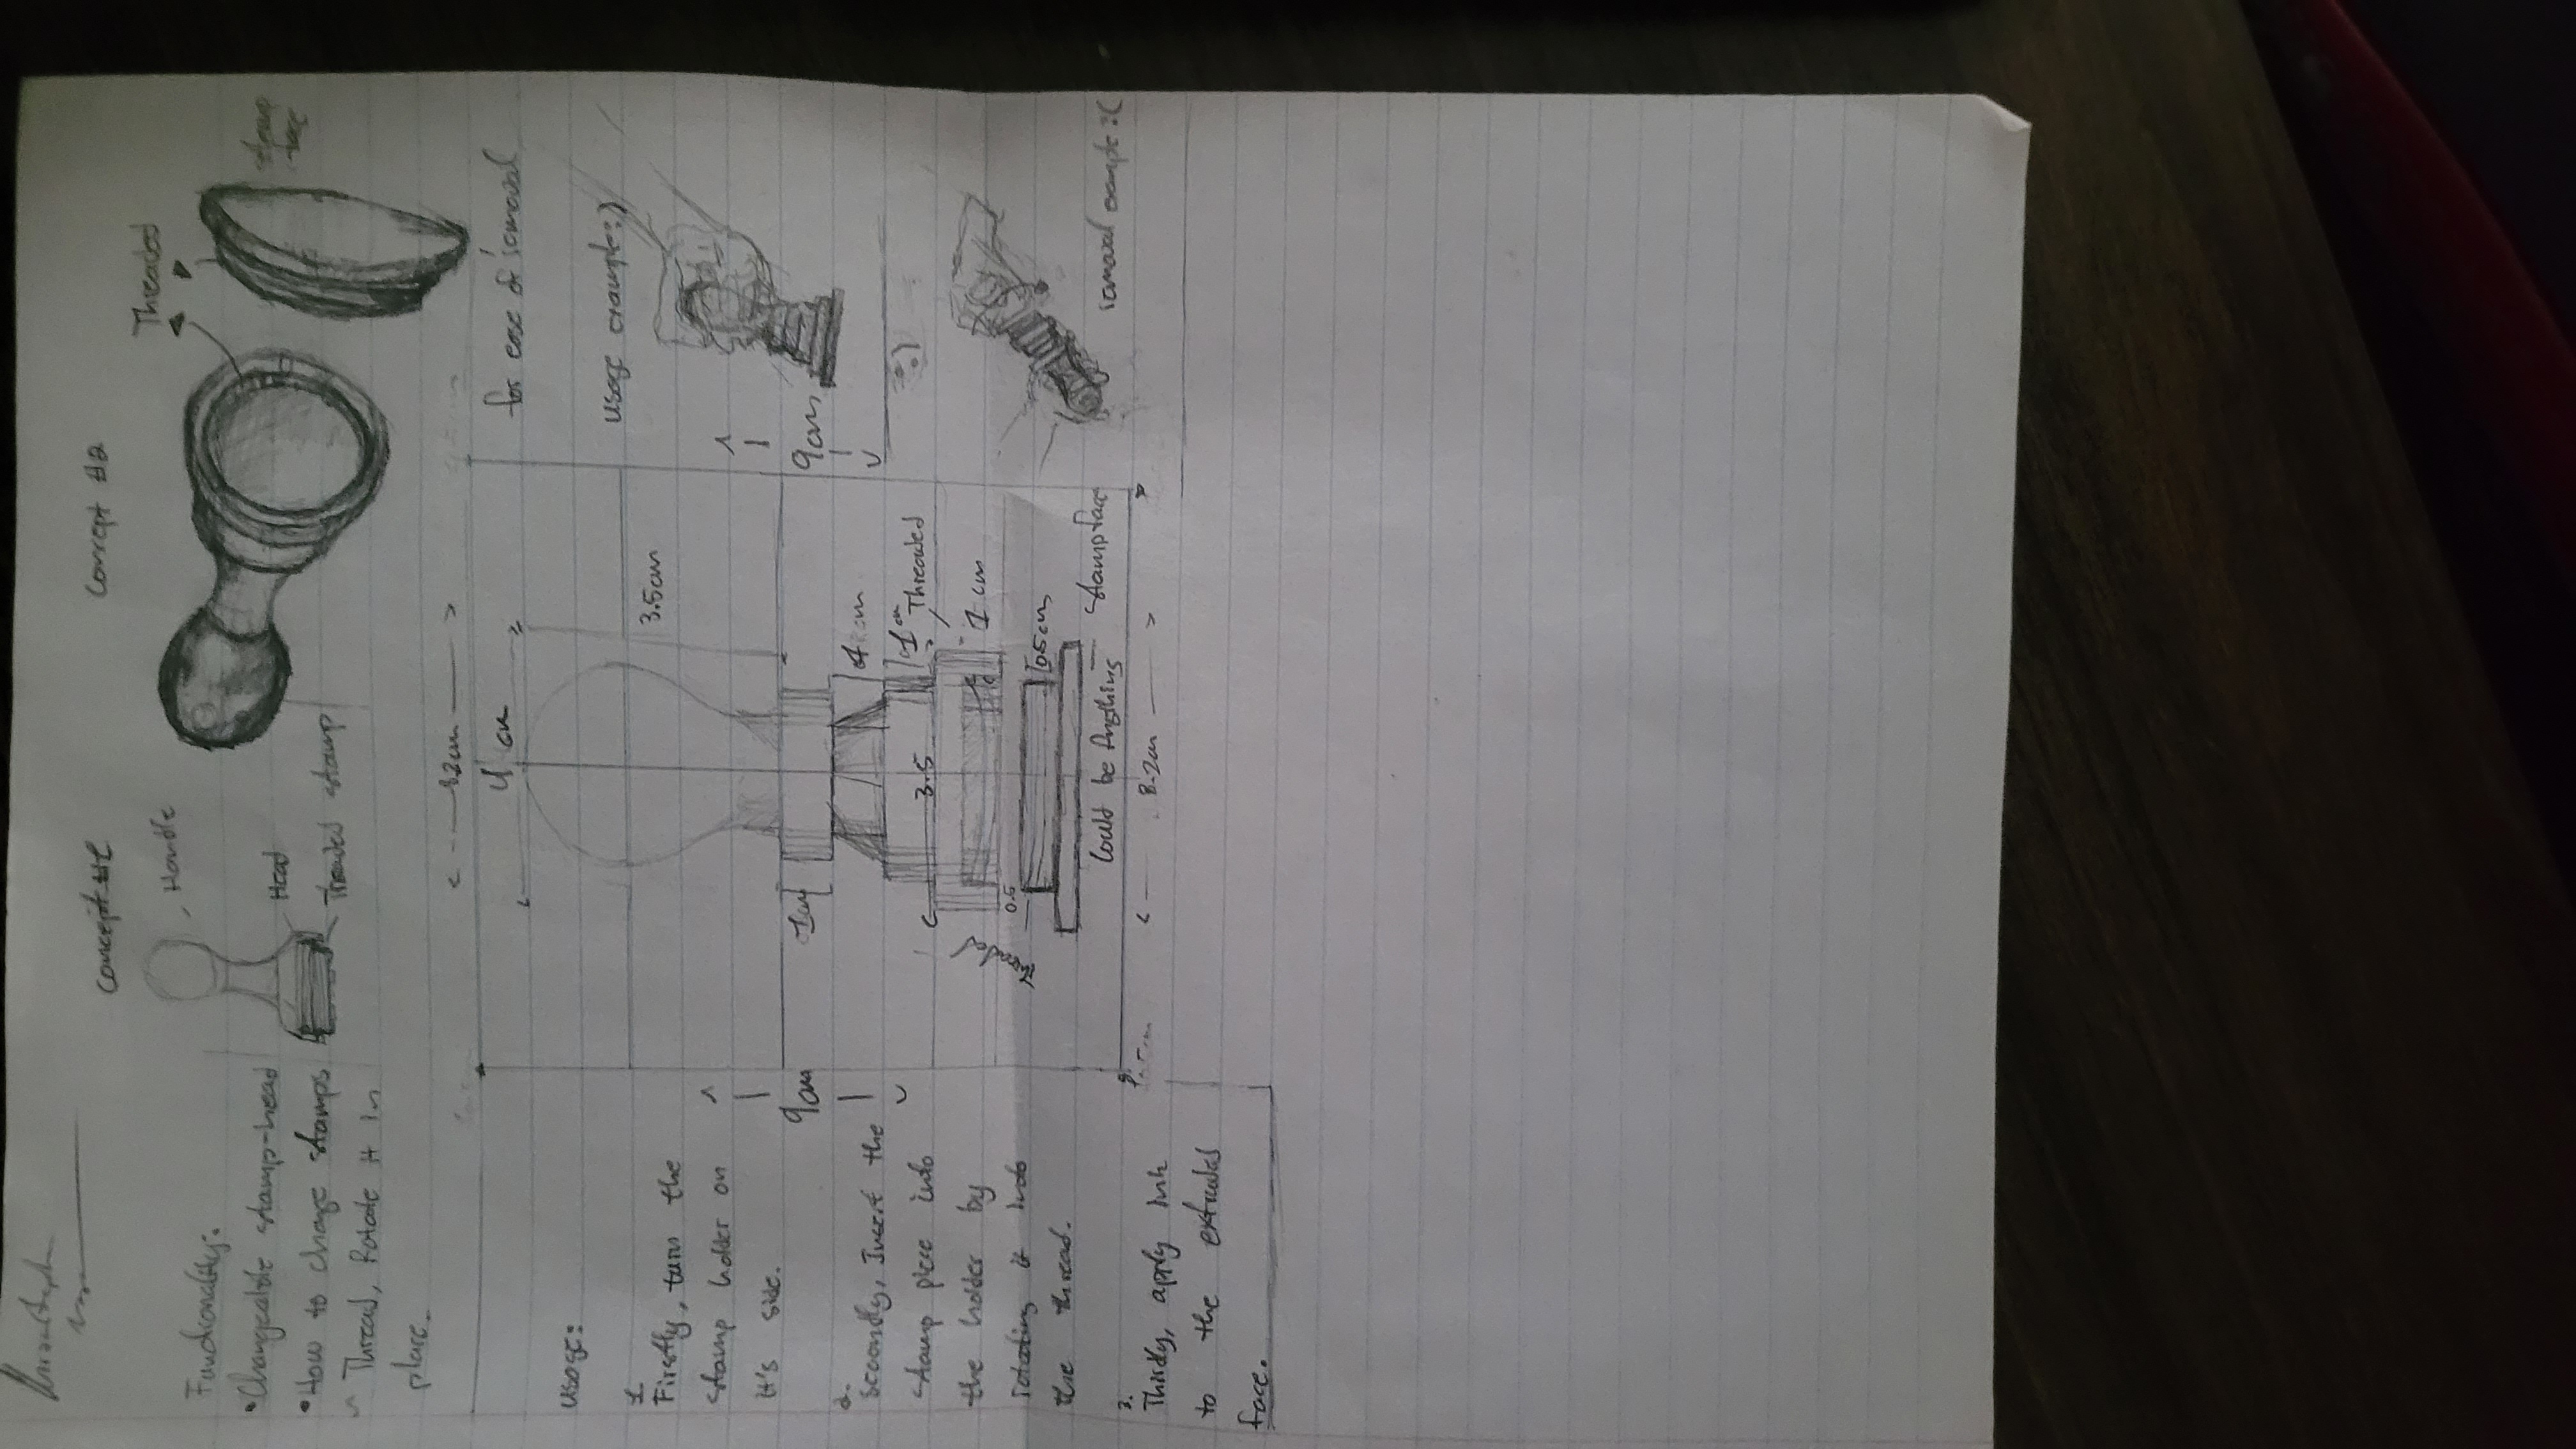 Concept #1
Concept #2
Functionality:
• Changeable stamp-head
• How to change stamps
Thread, Rotate it in
place.
Handle
Head
Threaded stamp
Threaded
stamp
face
for ease of removal
usage:
1.
Firstly, turn the
stamp holder on
it's side.
2.
Secondly, Insert the
stamp piece into
the holder by
rotating it into
the thread.
3.
Thirdly, apply ink
to the extruded
face.
8.2cm
4 cm
3.5cm
1cm
9cm
1 cm
Threaded
3.5
1 cm
0.5
0.5cm
Could be Anything
stamp face
8.2cm
9cm
usage example :)
removal example :(